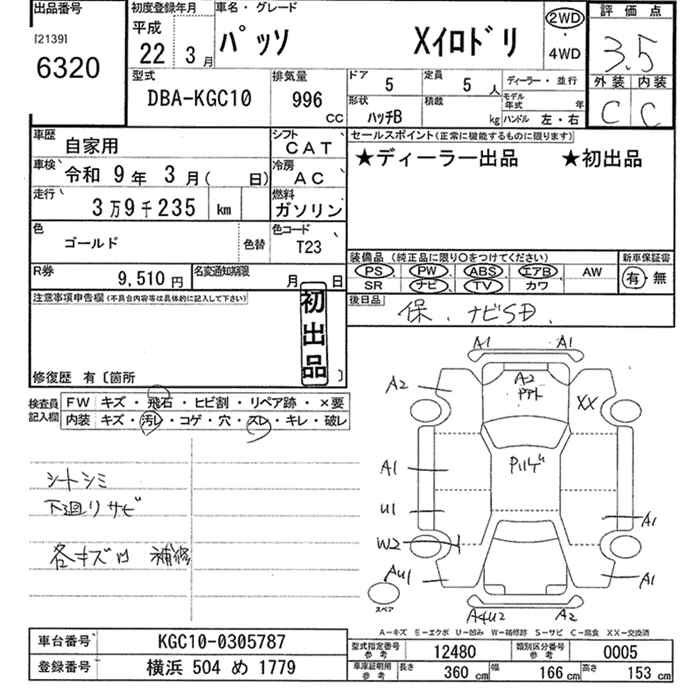 出品番号
[2139]
6320
初度登録年月
平成
22年 3月
車名・グレード
パッソ Xイロドリ
2WD
・
4WD
評価点
3.5
外装 内装
C C
型式
DBA-KGC10
排気量
996
CC
ドア 5
定員 5人
ディーラー・並行
形状 ハッチB
積載 kg
モデル年式 年
ハンドル 左・右
車歴 自家用
シフト CAT
車検 令和 9年 3月( 日)
冷房 AC
走行 3万9千235 km
燃料 ガソリン
色 ゴールド 色替
色コード T23
R券 9,510円
名変通知期限 月 日
セールスポイント(正常に機能するものに限ります)
★ディーラー出品 ★初出品
装備品(純正品に限り〇をつけてください)
PS PW ABS エアB AW
SR ナビ TV カワ
新車保証書
有・無
後日品
保、ナビSD
注意事項申告欄(不具合内容等は具体的に記入して下さい)
初出品
修復歴 有〔箇所 〕
検査員記入欄
FW キズ・飛石・ヒビ割・リペア跡・×要
内装 キズ・汚レ・コゲ・穴・スレ・キレ・破レ
シートシミ
下廻りサビ
各キズ凹 補修
A1 A1
A2 A2 XX
A1
U1 A1
W2
AU1 A1
スペア
A4U2 A2
A-キズ E-エクボ U-凹み W-補修跡 S-サビ C-腐食 XX-交換済
車台番号 KGC10-0305787
登録番号 横浜 504 め 1779
型式指定番号 参考 12480
類別区分番号 参考 0005
車庫証明用 参考 長さ 360cm 幅 166cm 高さ 153cm